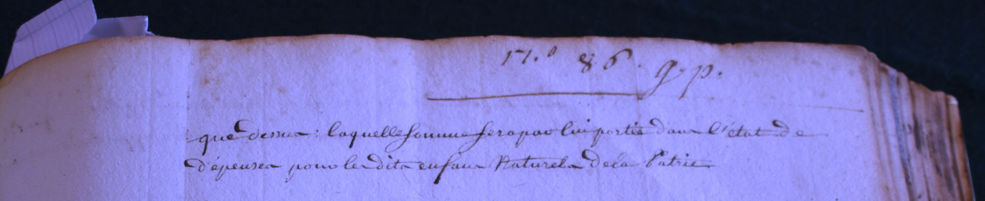 n.° 86. g. p.
que dessus: laquelle somme sera par lui portée dans l'état de
dépenses pour les dits enfans Naturels de la Patrie